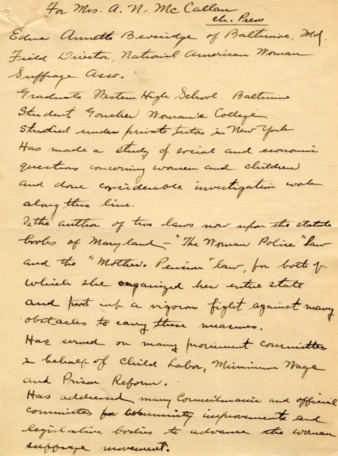 For Mrs. A. N. McCallan
ch. Press
Edna Annette Beveridge of Baltimore, Md.
Field Director, National American Woman
Suffrage Asso.
Graduate Western High School Baltimore
Student Goucher Woman's College
Studied under private tutors in New York
Has made a study of social and economic
questions concerning women and children
and done considerable investigation work
along this line.
Is the author of two laws now upon the statute
books of Maryland - "The Woman Police" law
and the "Mother's Pension" law, for both of
which she organized her entire state
and put up a vigorous fight against many
obstacles to carry these measures.
Has served on many prominent committees
in behalf of Child Labor, Minimum Wage
and Prison Reform.
Has addressed many Councilmanic and official
committees for community improvements and
legislative bodies to advance the woman
suffrage movement.